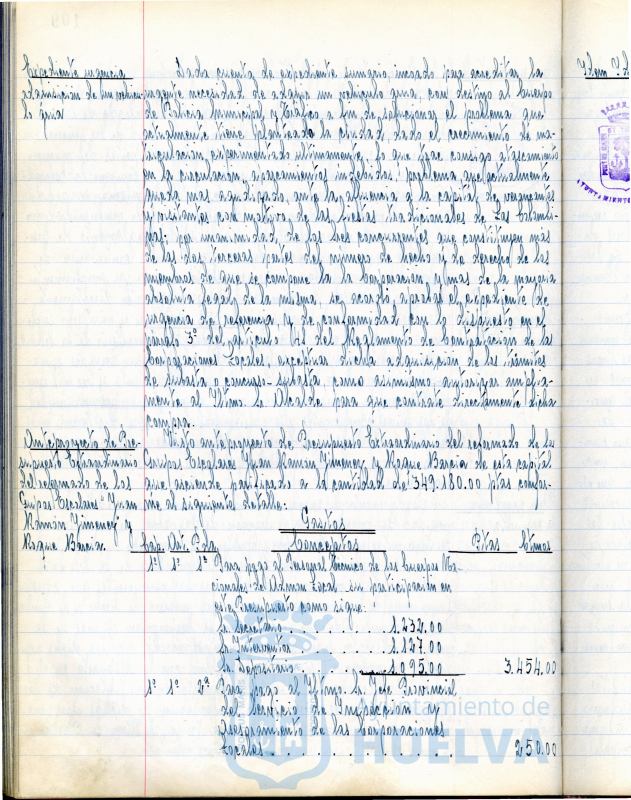 Expediente urgencia
adquisición de un vehícu-
lo grúa
Dada cuenta de expediente sumario, incoado para acreditar la
urgente necesidad de adquirir un vehículo grúa, con destino al Cuerpo
de Policía Municipal y Tráfico, a fin de solucionar el problema que
actualmente tiene planteado la ciudad, dado el crecimiento de ma-
triculación experimentado ultimamente, lo que trae consigo atascamiento
en la circulación, aparcamientos indebidos, problema que actualmente
queda mas agudizado, ante la afluencia a la capital, de veraneantes
y visitantes con motivo de las fiestas tradicionales de Las Colombi-
nas; por unanimidad, de los tres concurrentes que constituyen mas
de las dos terceras partes del número de hecho y de derecho de los
miembros de que se compone la Corporación y mas de la mayoría
absoluta legal de la misma, se acordó aprobar el expediente de
urgencia de referencia, y de conformidad con lo dispuesto en el
párrafo 3º del artículo del Reglamento de Contratación de las
Corporaciones Locales, exceptuar dicha adquisición de los trámites
de subasta o concurso-subasta, como asimismo, autorizar amplia-
mente al Iltmo. Sr. Alcalde para que contrate directamente dicha
compra.
Anteproyecto de Pre-
supuesto Extraordinario
del reformado de los
Grupos Escolares "Juan
Ramón Jimenez" y
Roque Barcia.
Visto anteproyecto de Presupuesto Extraordinario del reformado de los
Grupos Escolares Juan Ramón Jimenez y Roque Barcia de esta capital
que asciende a la cantidad de 349.180.00 ptas confor-
me al siguiente detalle:
Gastos
Cap. Art. Pda. Conceptos Ptas Ctmos
1º 1º 1ª Para pago al Personal técnico de los Cuerpos Na-
cionales de Admon Local su participación en
este Presupuesto como sigue:
Sr. Secretario . . . . . . . 1.232.00
Sr. Interventor . . . . . . . 1.127.00
Sr. Depositario . . . . . . . 1.095.00 3.454.00
1º 1º 2ª Para pago al Iltmo. Sr. Jefe Provincial
del Servicio de Inspección y
Asesoramiento de las Corporaciones
Locales . . . . . . . . . . 250.00
Ayuntamiento de
HUELVA